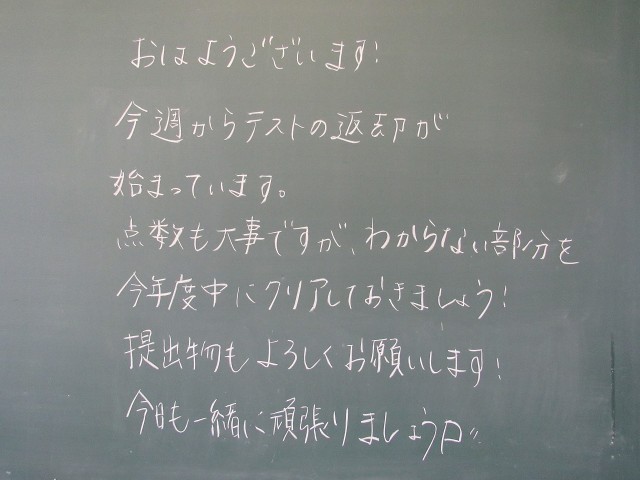 おはようございます!
今週からテストの返却が
始まっています。
点数も大事ですが、わからない部分を
今年度中にクリアしておきましょう!
提出物もよろしくお願いします!
今日も一緒に頑張りましょう